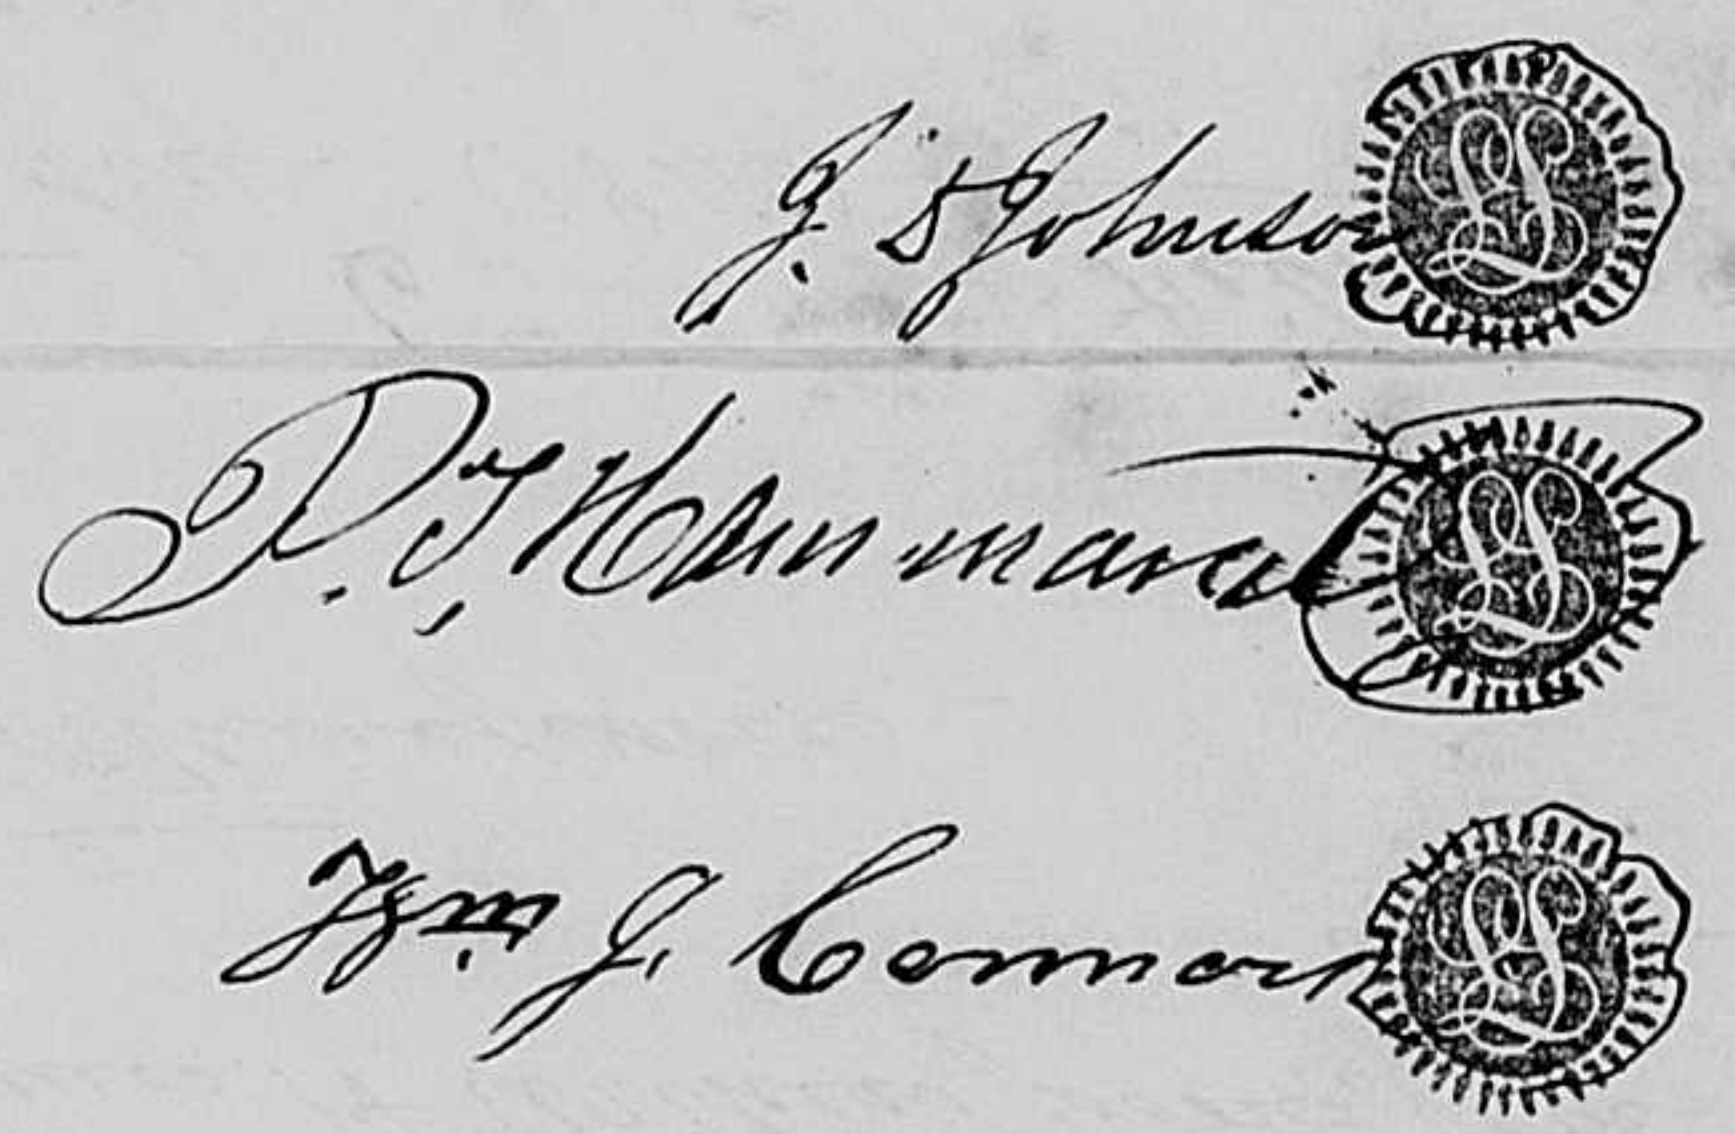 J. S Johnson LS
P. J. Hammond LS
Wm. J. Connors LS